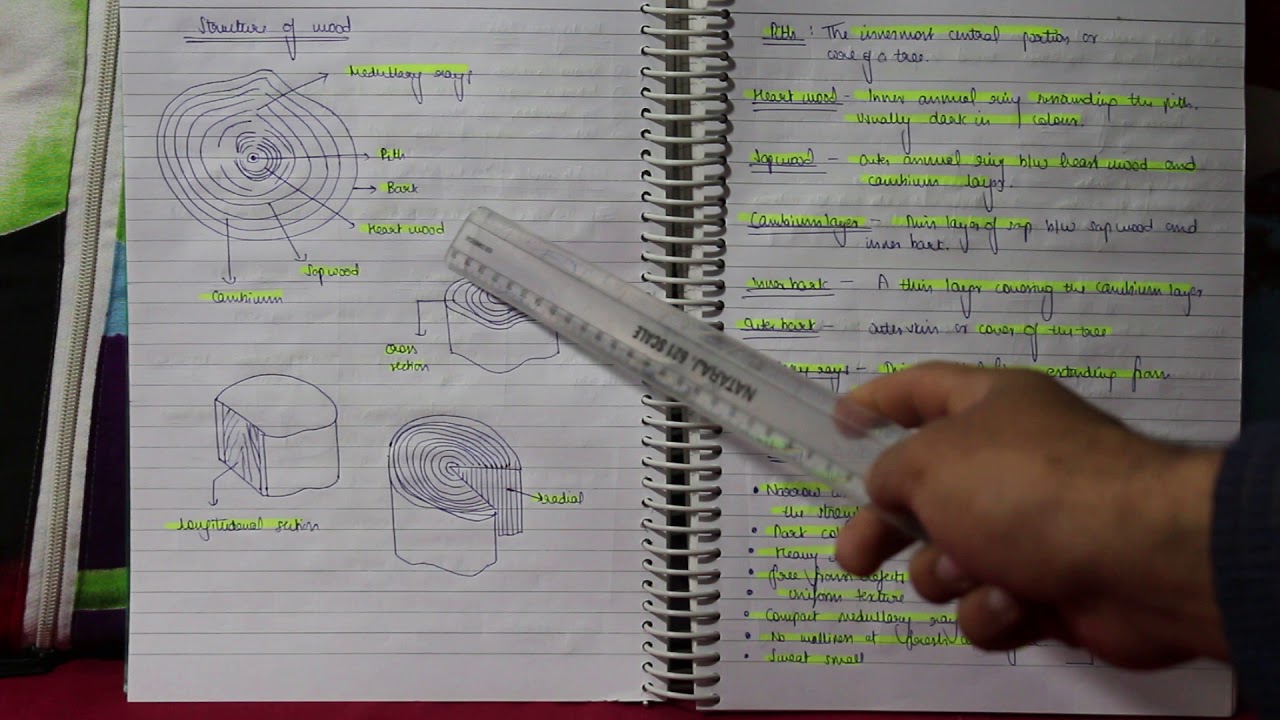 Structure of wood
Medullery rays
Pith
Bark
Heart wood
Sap wood
Cambium
cross
section
radial
Longitudional section
NATARAJ. 621 SCALE
Pith : The innermost central portion or
core of a tree.
Heart wood - Inner annual ring surrounding the pith.
Usually dark in colour.
Sapwood - outer annual ring b/w heart wood and
cambium layer.
Cambium layer - Thin layer of sap b/w sap wood and
inner bark.
Inner bark - A thin layer covering the cambium layer
Outer bark - outer skin or cover of the tree
rays - extending from
• Narrow
the
• Dark
• Heavy
• free from defect
• Uniform texture
• Compact medullery
• No at fresh
• Sweat smell